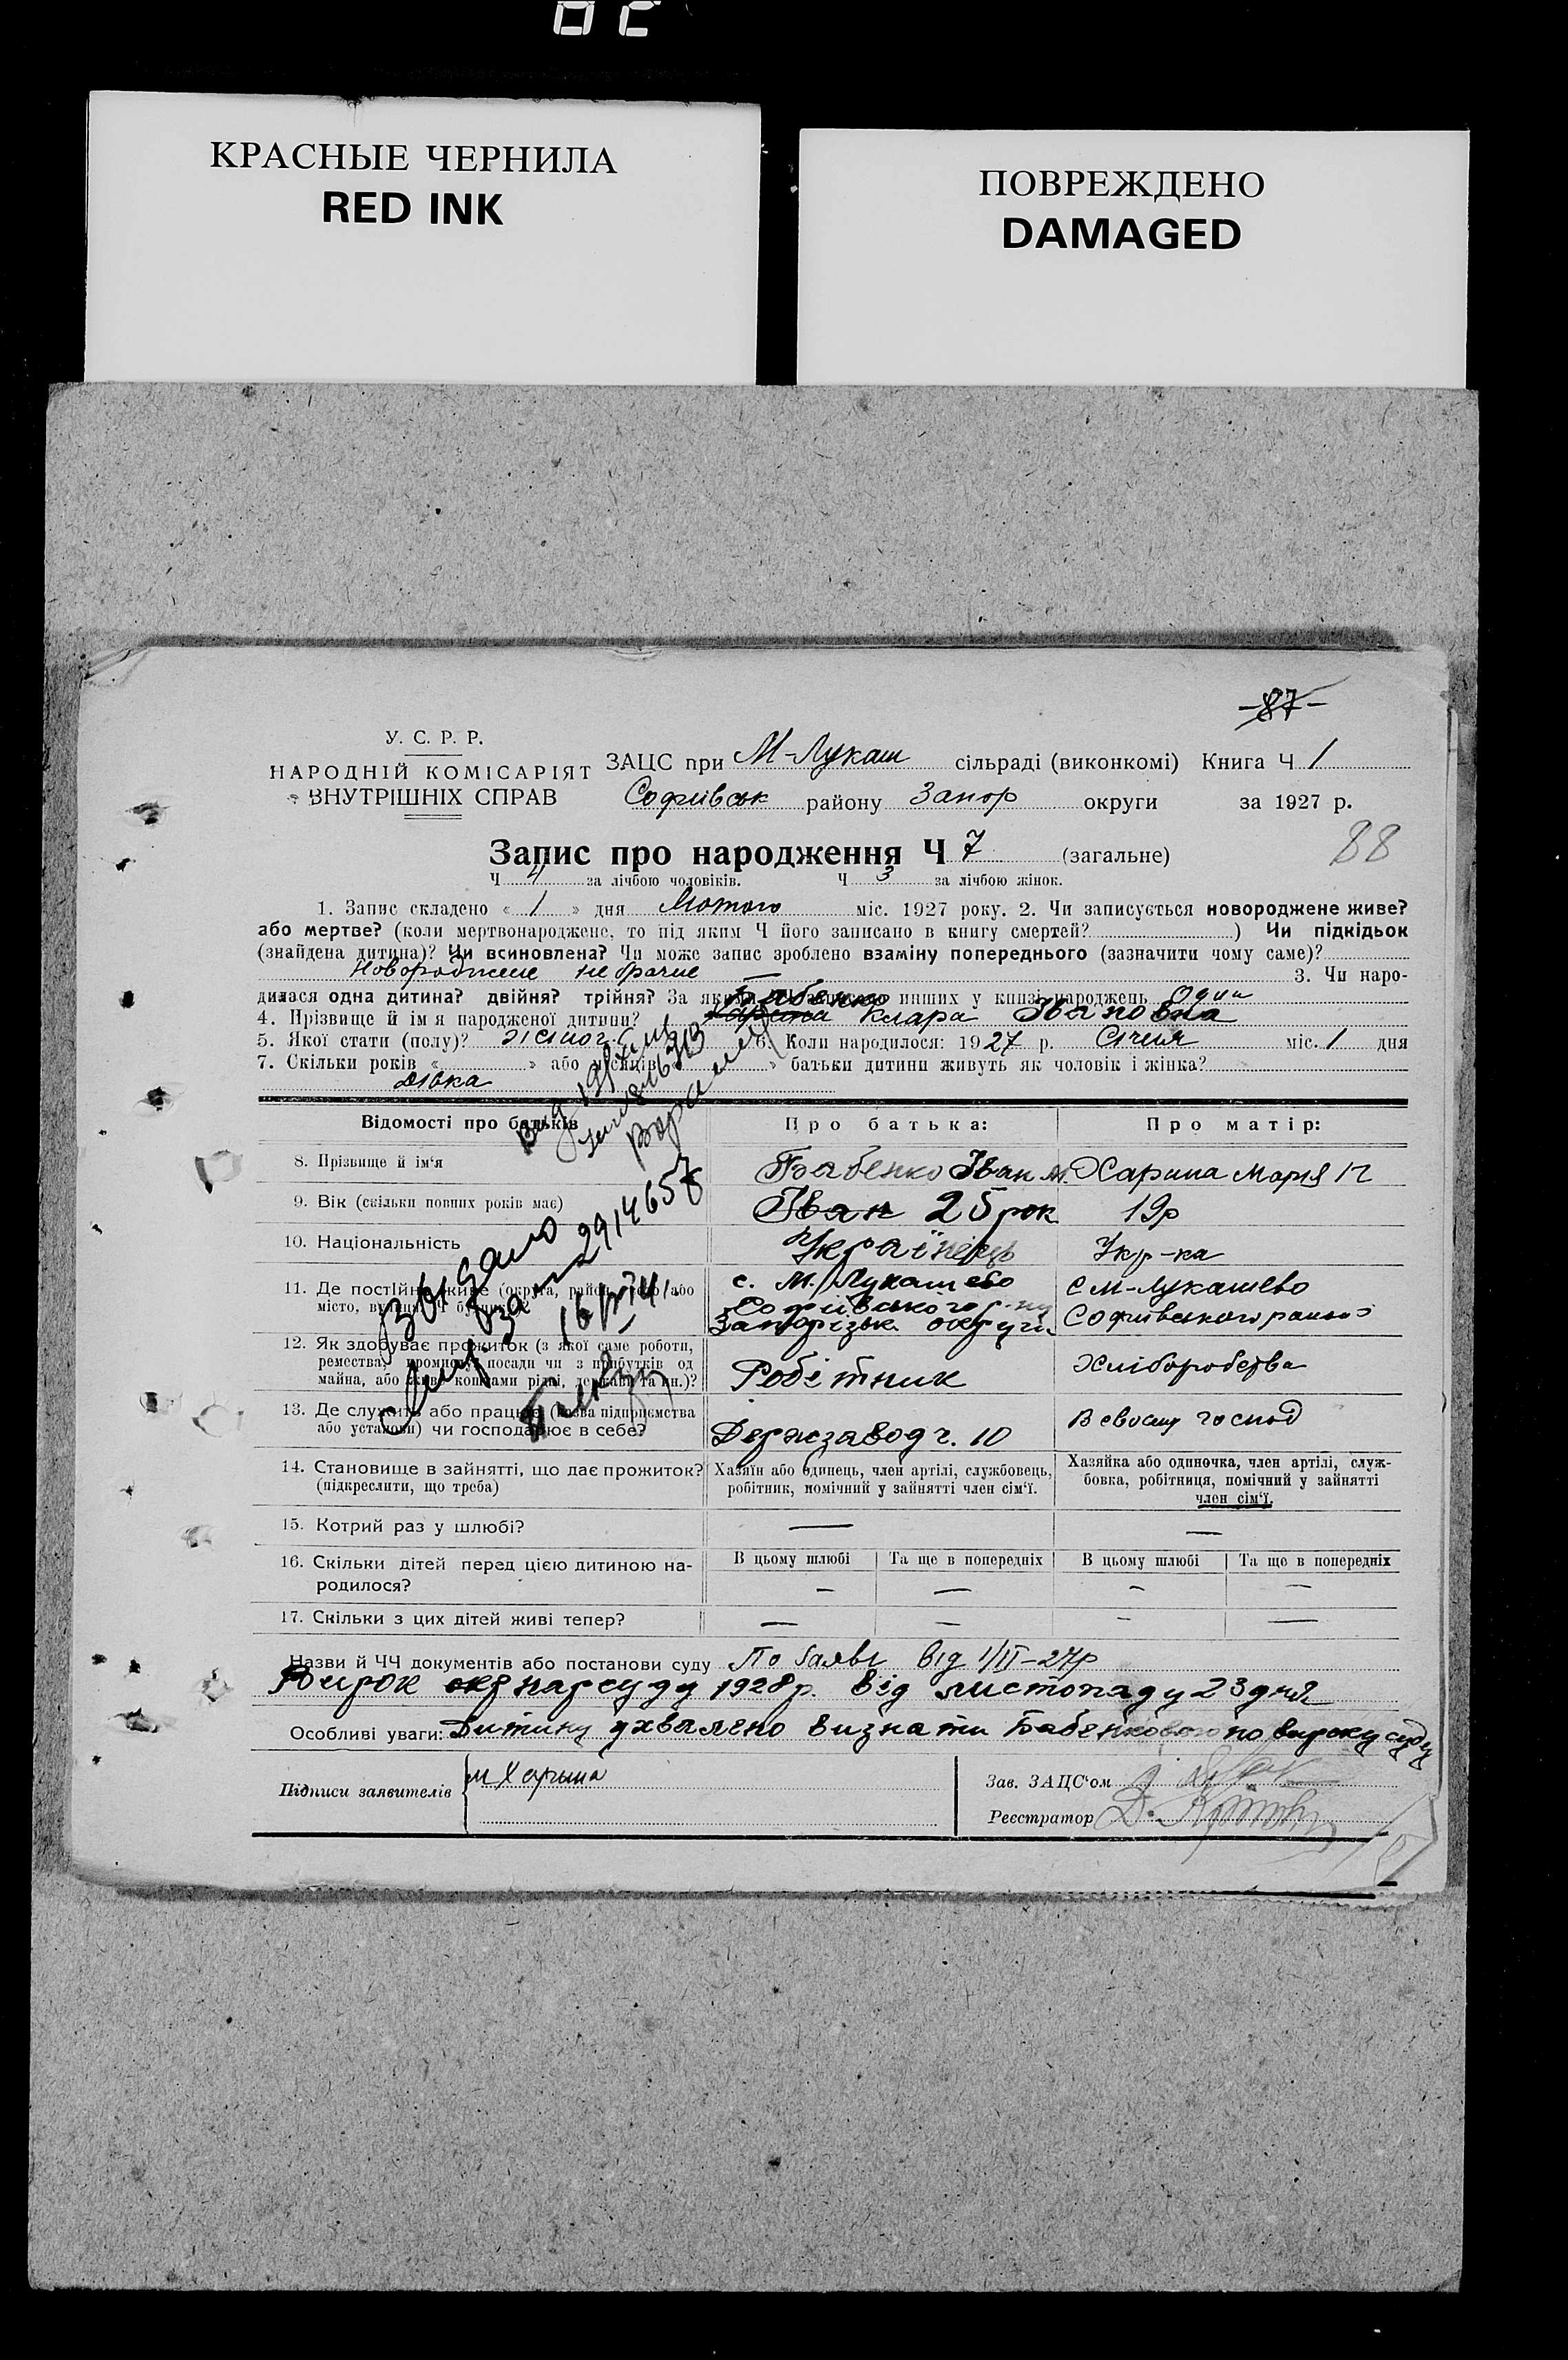 КРАСНЫЕ ЧЕРНИЛА
RED INK
ПОВРЕЖДЕНО
DAMAGED
-87-
У. С. Р. Р.
НАРОДНІЙ КОМІСАРІЯТ
ВНУТРІШНІХ СПРАВ
ЗАЦС при М-Лукаш сільраді (виконкомі) Книга Ч 1
Софиівськ району Запор округи за 1927 р.
88
Запис про народження Ч 7 (загальне)
Ч 4 за лічбою чоловіків. Ч 3 за лічбою жінок.
1. Запис складено « 1 » дня Лютого міс. 1927 року. 2. Чи записується новороджене живе?
або мертве? (коли мертвонароджене, то під яким Ч його записано в книгу смертей? ) Чи підкідьок
(знайдена дитина)? Чи всиновлена? Чи може запис зроблено взаміну попереднього (зазначити чому саме)?
Новороджене не брачне 3. Чи наро-
дилася одна дитина? двійня? трійня? За якими инших у книзі народжень Один
Бабенко
4. Прізвище й ім'я народженої дитини? Харина Клара Івановна
5. Якої стати (полу)? жіноч. 6. Коли народилося: 1927 р. Січня міс. 1 дня
7. Скільки років « » або місяців « » батьки дитини живуть як чоловік і жінка?
Дівка
Відомості про батьків
Про батька:
Про матір:
8. Прізвище й ім'я
Бабенко Іван М.
Харина Мария П
9. Вік (скільки повних років має)
Іван 25 рок
19р
10. Національність
Українець
Укр-ка
11. Де постійно живе (округа, район, село або
місто, вулиця й Ч будинку)?
с. М. Лукашево
Софиівського р-ну
Запорізьк. округи
с М-Лукашево
Софиівського району
12. Як здобуває прожиток (з якої саме роботи,
ремества, промислу, посади чи з прибутків од
майна, або живе коштами рідні, держави та ин.)?
Робітник
Хліборобства
13. Де служить або працює (назва підприємства
або установи) чи господарює в себе?
Держзавод ч. 10
В своєму господ
14. Становище в зайнятті, що дає прожиток?
(підкреслити, що треба)
Хазяїн або одинець, член артілі, службовець,
робітник, помічний у зайнятті член сім'ї.
Хазяйка або одиночка, член артілі, служ-
бовка, робітниця, помічний у зайнятті
член сім'ї.
15. Котрий раз у шлюбі?
16. Скільки дітей перед цією дитиною на-
родилося?
В цьому шлюбі
Та ще в попередніх
В цьому шлюбі
Та ще в попередніх
17. Скільки з цих дітей живі тепер?
Назви й ЧЧ документів або постанови суду По заяві від 1/II-27р
Вирок окр нарсуду 1928р. від листопаду 23 дня
Особливі уваги: Дитину ухвалено визнати Бабенковою по вироку суду
Підписи заявителів
м Харина
Зав. ЗАЦС'ом
Реєстратор
Выдано
2914657